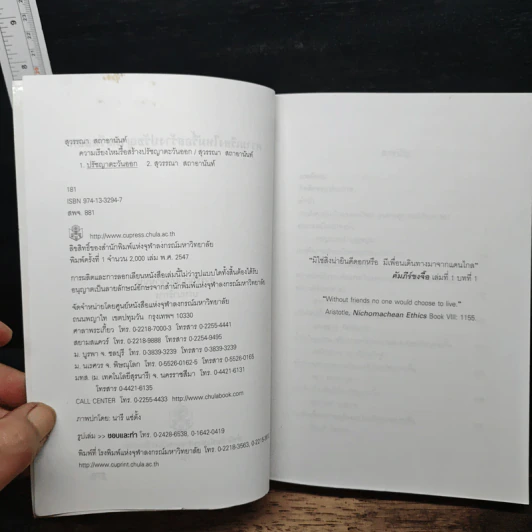 สุวรรณา สถาอานันท์
ความเรียงใหม่รื้อสร้างปรัชญาตะวันออก / สุวรรณา สถาอานันท์
1. ปรัชญาตะวันออก 2. สุวรรณา สถาอานันท์
181
ISBN 974-13-3294-7
สพจ. 881
http://www.cupress.chula.ac.th
ลิขสิทธิ์ของสำนักพิมพ์แห่งจุฬาลงกรณ์มหาวิทยาลัย
พิมพ์ครั้งที่ 1 จำนวน 2,000 เล่ม พ.ศ. 2547
การผลิตและการลอกเลียนหนังสือเล่มนี้ไม่ว่ารูปแบบใดทั้งสิ้นต้องได้รับ
อนุญาตเป็นลายลักษณ์อักษรจากสำนักพิมพ์แห่งจุฬาลงกรณ์มหาวิทยาลัย
จัดจำหน่ายโดยศูนย์หนังสือแห่งจุฬาลงกรณ์มหาวิทยาลัย
ถนนพญาไท เขตปทุมวัน กรุงเทพฯ 10330
ศาลาพระเกี้ยว โทร. 0-2218-7000-3 โทรสาร 0-2255-4441
สยามสแควร์ โทร. 0-2218-9888 โทรสาร 0-2254-9495
ม. บูรพา จ. ชลบุรี โทร. 0-3839-3239 โทรสาร 0-3839-3239
ม. นเรศวร จ. พิษณุโลก โทร. 0-5526-0162-5 โทรสาร 0-5526-0165
มทส. (ม. เทคโนโลยีสุรนารี) จ. นครราชสีมา โทร. 0-4421-6131
โทรสาร 0-4421-6135
CALL CENTER โทร. 0-2255-4433 http://www.chulabook.com
ภาพปกโดย: นารี แซ่ตั้ง
รูปเล่ม >> ชอบและทำ โทร. 0-2428-6538, 0-1642-0419
พิมพ์ที่ โรงพิมพ์แห่งจุฬาลงกรณ์มหาวิทยาลัย โทร. 0-2218-3563, 0-2218-
http://www.cuprint.chula.ac.th
"มิใช่สิ่งน่ายินดีดอกหรือ มีเพื่อนเดินทางมาจากแดนไกล"
คัมภีร์ขงจื่อ เล่มที่ 1 บทที่ 1
"Without friends no one would choose to live."
Aristotle, Nichomachean Ethics Book VIII: 1155.